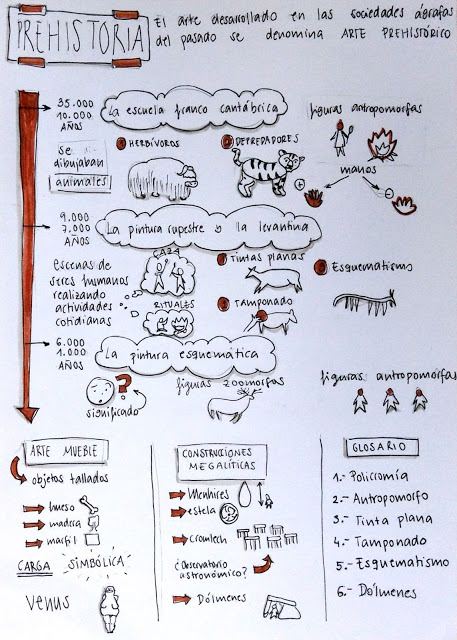 PREHISTORIA
El arte desarrollado en las sociedades ágrafas
del pasado se denomina ARTE PREHISTÓRICO
35.000
10.000
AÑOS
La escuela franco cantábrica
figuras antropomorfas
Se
dibujaban
animales
HERBÍVOROS
DEPREDADORES
manos
+
-
9.000
7.000
AÑOS
La pintura rupestre o la levantina
escenas de
seres humanos
realizando
actividades
cotidianas
CAZA
RITUALES
Tintas planas
Tamponado
Esquematismo
6.000
1.000
AÑOS
La pintura esquemática
?
significado
figuras zoomorfas
figuras antropomórfas
ARTE MUEBLE
objetos tallados
hueso
madera
marfil
CARGA SIMBÓLICA
Venus
CONSTRUCCIONES
MEGALÍTICAS
Menhires
estela
Cromlech
¿Observatorio
astronómico?
Dólmenes
GLOSARIO
1.- Policromía
2.- Antropomorfo
3.- Tinta plana
4.- Tamponado
5.- Esquematismo
6.- Dólmenes